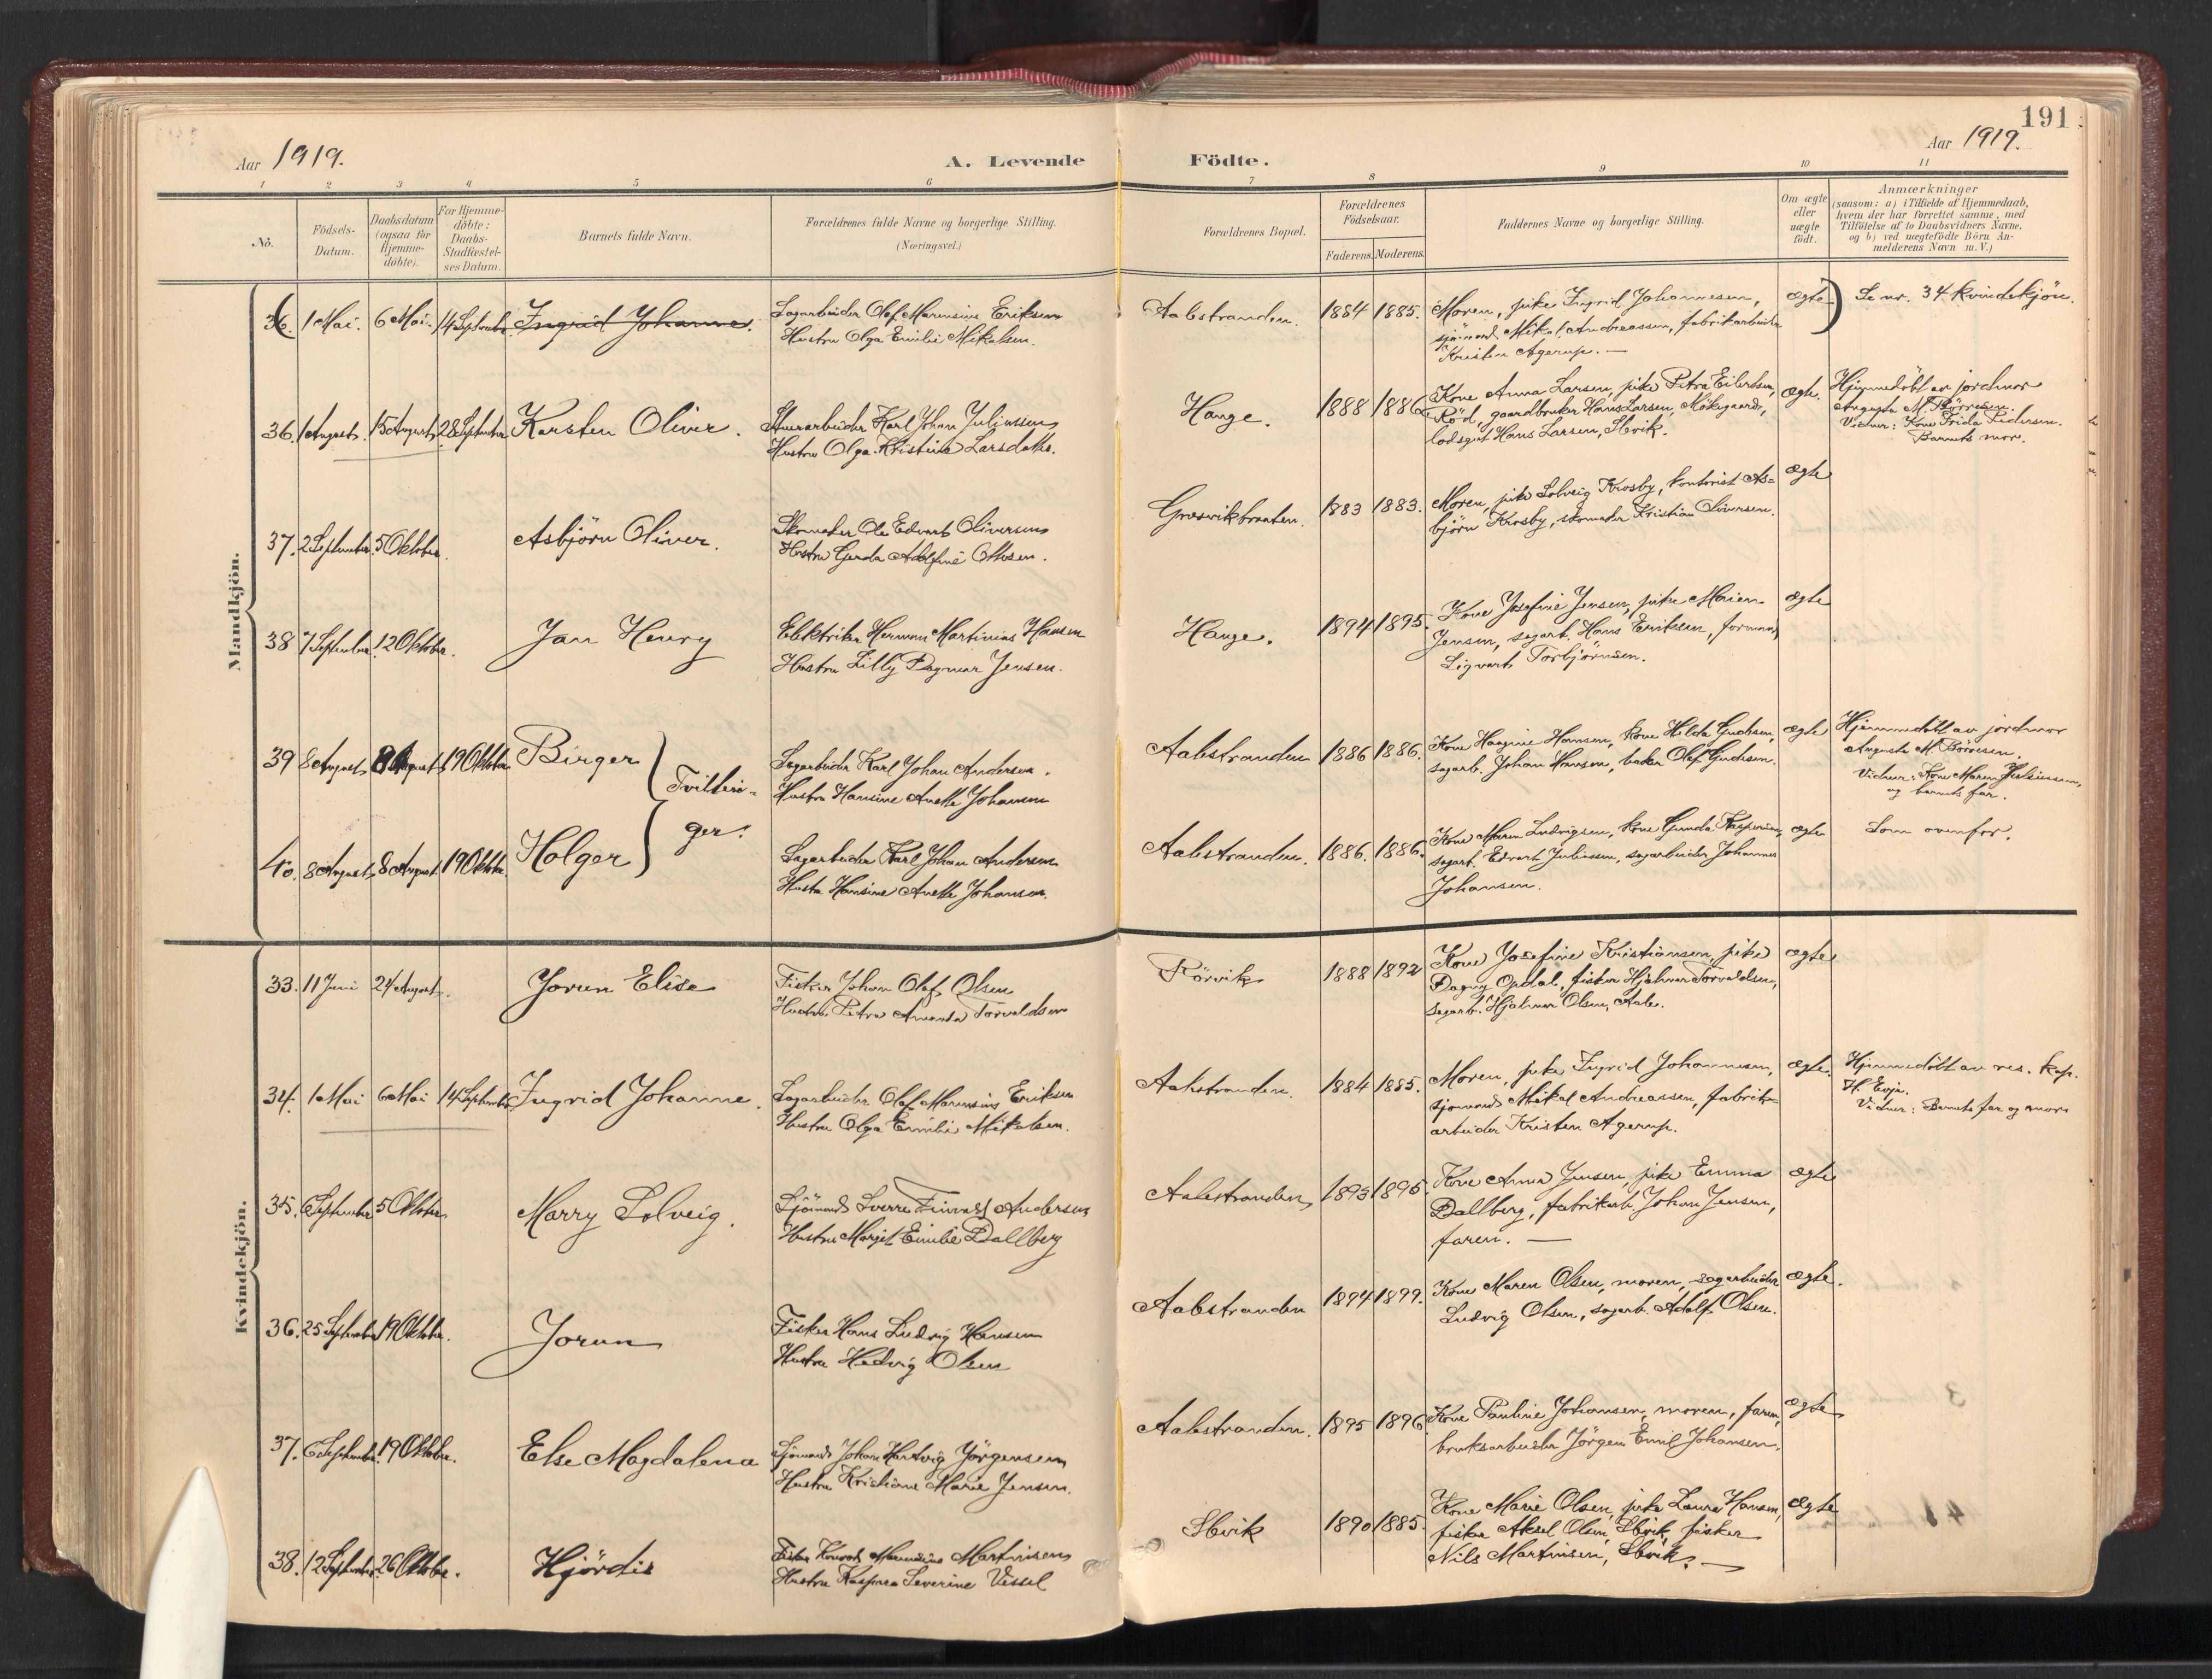 191
Aar 1919.
A. Levende Födte.
Aar 1919.
1 2 3 4 5 6 7 8 9 10 11
No.
Födsels-
Datum.
Daabsdatum
(ogsaa for
Hjemme-
döbte).
For Hjemme-
döbte:
Daabs-
Stadfæstel-
ses Datum.
Barnets fulde Navn.
Forældrenes fulde Navne og borgerlige Stilling.
(Næringsvei.)
Forældrenes Bopæl.
Forældrenes
Födselsaar.
Faderens. Moderens.
Faddernes Navne og borgerlige Stilling.
Om ægte
eller
uægte
födt.
Anmærkninger
(saasom: a) i Tilfælde af Hjemmedaab,
hvem der har forrettet samme, med
Tilföielse af to Daabsvidners Navne.
og b) ved uægtefödte Börn An-
melderens Navn m.V.)
Mandkjön.
36. 1 Mai. 6 Mai. 14 September Ingrid Johanne.
Sagarbeider Olaf Marensius Eriksen
Hustru Olga Emilie Mikalsen.
Aalestranden. 1884 1885.
Moren, pike Ingrid Johannesen,
sjömand Mikal Andreassen, fabrikarbeider
Kristen Agerup. —
ægte
Se nr. 34 kvindekjön.
36. 1 August. 15 August 28 September Karsten Oliver.
Stenarbeider Karl Johan Juliussen
Hustru Olga Kristine Larsdatter.
Hauge. 1888 1886
Kone Anna Larsen, pike Petra Eilertsen,
Röd, gaardbruker Hans Larsen,
lodsgut Hans Larsen, Slevik.
ægte.
Hjemmedöbt av jordmor
Augusta M. Börresen.
Vidner: Kone Frida Pedersen.
Barnets mor.
37. 2 September 5 Oktober. Asbjörn Oliver.
Skomaker Ole Edvart Oliversen
Hustru Gerda Adolfine Ottesen.
Græsvikbraaten. 1883 1883.
Moren, pike Solveig Krosby, kontorist As=
björn Krosby, skomaker Kristian Oliversen.
ægte
38 7 September. 12 Oktober. Jan Henry
Elektriker Herman Martinius Hansen
Hustru Lilly Dagmar Jensen.
Hauge. 1894 1895.
Kone Josefine Jensen, pike Maien
Jensen, sagarb. Hans Eriksen, formand
Sigvart Torbjörnsen.
ægte
39 8 August 8 August 19 Oktober Birger
Tvillin=
ger.
Sagarbeider Karl Johan Andersen.
Hustru Hansine Anette Johansen
Aalestranden 1886 1886.
Kone Haagine Hansen, kone Hilda Gudesen,
sagarb. Johan Hansen, baker Olaf Gudesen.
ægte
Hjemmedöbt av jordmor
Augusta M. Börresen.
Vidner: Kone Maren Juliussen,
og barnets far.
40. 8 August 8 August 19 Oktober. Holger
Sagarbeider Karl Johan Andersen
Hustru Hansine Anette Johansen.
Aalestranden. 1886. 1886.
Kone Maren Ludvigsen, kone Gunda Kaspersen,
sagarb. Edvart Juliussen, sagarbeider Johannes
Johansen.
ægte
Som ovenfor.
Kvindekjön.
33. 11 Juni 24 August. Jorun Elise
Fisker Johan Olaf Olsen
Hustru Petra Amanda Torvaldsen
Rörvik 1888 1892
Kone Josefine Kristiansen, pike
Dagny Opdal, fisker Hjalmar Torvaldsen,
sagarb. Hjalmar Olsen, Aale.
ægte
34. 1 Mai 6 Mai 14 September Ingrid Johanne.
Sagarbeider Olaf Marensius Eriksen
Hustru Olga Emilie Mikalsen.
Aalestranden. 1884 1885.
Moren, pike Ingrid Johannesen,
sjömand Mikal Andreassen, fabrik=
arbeider Kristen Agerup.
ægte.
Hjemmedöbt av res. kap.
H. Evje.
Vidner: Barnets far og mor
35. 6 September 5 Oktober Marry Solveig.
Sjömand Sverre Andersen
Hustru Margit Emilie Dallberg
Aalestranden 1893 1895
Kone Anna Jensen, pike Emma
Dallberg, fabrikarb. Johan Jensen,
faren. —
ægte
36. 25 September 19 Oktober. Jorun
Fisker Hans Ludvig Hansen
Hustru Hedvig Olsen
Aalestranden 1894 1899.
Kone Maren Olsen, moren, sagarbeider
Ludvig Olsen, sagarb. Adolf Olsen.
ægte.
37. 6 September. 19 Oktober. Else Magdalena
Sjömand Johan Hartvig Jörgensen
Hustru Kristiane Marie Jensen.
Aalestranden. 1895 1896
Kone Pauline Johansen, moren, faren,
bruksarbeider Jörgen Emil Johansen.
ægte
38. 12 September 26 Oktober. Hjördis
Fisker Konrad Marensius Martinsen
Hustru Kasparea Severine Vessel
Slevik 1890 1885.
Kone Marie Olsen, pike Laura Hansen,
fisker Aksel Olsen, Slevik, fisker
Nils Martinsen, Slevik. —
ægte